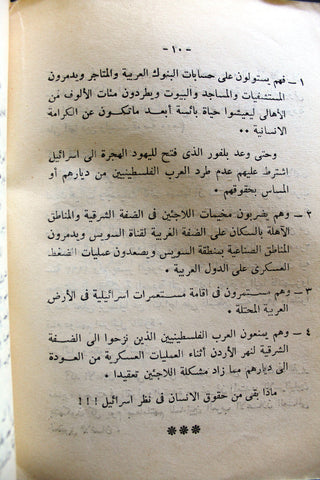 - ١٠ -
١ - فهم يستولون على حسابات البنوك العربية والمتاجر ويدمرون
المستشفيات والمساجد والبيوت ويطردون مئات الألوف من
الأهالى ليعيشوا حياة بائسة أبعد ماتكون عن الكرامة
الانسانية ..
وحتى وعد بلفور الذى فتح لليهود الهجرة الى اسرائيل
اشترط عليهم عدم طرد العرب الفلسطينيين من ديارهم أو
المساس بحقوقهم .
٢ - وهم يضربون مخيمات اللاجئين فى الضفة الشرقية والمناطق
الآهلة بالسكان على الضفة الغربية لقناة السويس ويدمرون
المناطق الصناعية بمنطقة السويس ويصعدون عمليات الضغط
العسكرى على الدول العربية .
٣ - وهم مستمرون فى اقامة مستعمرات اسرائيلية فى الأرض
العربية المحتلة .
٤ - وهم يمنعون العرب الفلسطينيين الذين نزحوا الى الضفة
الشرقية لنهر الأردن أثناء العمليات العسكرية من العودة
الى ديارهم مما زاد مشكلة اللاجئين تعقيدا .
ماذا بقى من حقوق الانسان فى نظر اسرائيل !!!
***